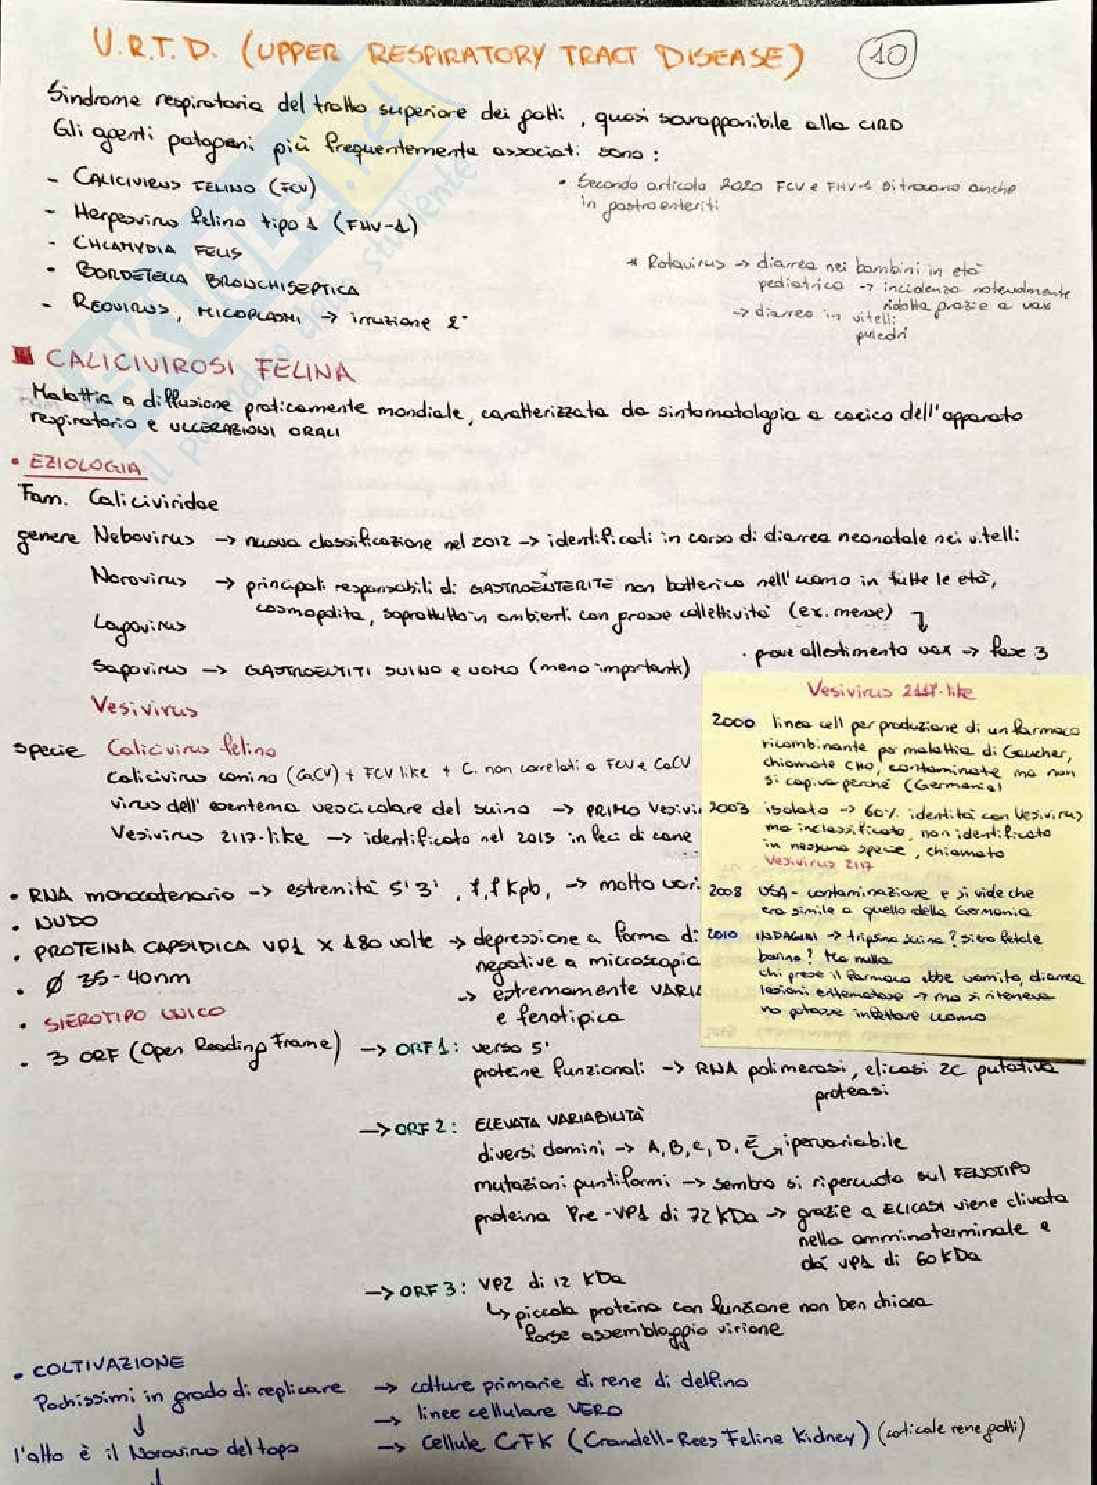 U.R.T.D. (UPPER RESPIRATORY TRACT DISEASE)
10
Sindrome respiratoria del tratto superiore dei gatti, quasi sovrapponibile alla CIRD
Gli agenti patogeni più frequentemente associati sono:
- CALICIVIRUS FELINO (FCV)
- Herpesvirus felino tipo 1 (FHV-1)
- CHLAMYDIA FELIS
- BORDETELLA BRONCHISEPTICA
- REOVIRUS, MICOPLASMI → irruzione 2°
• Secondo articolo 2020 FCV e FHV-1 si trovano anche
in gastroenteriti
* Rotavirus → diarrea nei bambini in età
pediatrica → incidenza notevolmente
ridotta grazie a vax
→ diarrea in vitelli
puledri
CALICIVIROSI FELINA
Malattia a diffusione praticamente mondiale, caratterizzata da sintomatologia a carico dell'apparato
respiratorio e ULCERAZIONI ORALI
• EZIOLOGIA
Fam. Caliciviridae
genere Nebovirus → nuova classificazione nel 2012 → identificati in corso di diarrea neonatale nei vitelli
Norovirus → principali responsabili di GASTROENTERITE non batterica nell'uomo in tutte le età,
cosmopolita, soprattutto in ambienti con grosse collettività (ex. mense)
Lagovirus
• prove allestimento vax → fase 3
Sapovirus → GASTROENTITI SUINO e UOMO (meno importanti)
Vesivirus
specie Calicivirus felino
Calicivirus canino (CaCV) + FCV like + C. non correlati a FCV e CaCV
virus dell'esantema vescicolare del suino → PRIMO Vesivi
Vesivirus 2117-like → identificato nel 2015 in feci di cane
Vesivirus 2117-like
2000 linea cell per produzione di un farmaco
ricombinante per malattia di Gaucher,
chiamate CHO, contaminate ma non
si capiva perché (Germania)
2003 isolato → 60% identità con Vesivirus
ma inclassificato, non identificato
in nessuna specie, chiamato
Vesivirus 2117
2008 USA - contaminazione e si vide che
era simile a quello della Germania
2010 INDAGINI → tripsina suina? siero fetale
bovino? Ma nulla
chi prese il farmaco ebbe vomito, diarrea
lesioni eritematose → ma si riteneva
no potesse infettare uomo
• RNA monocatenario → estremità 5' 3', 7,7 Kpb, → molto vari
• NUDO
• PROTEINA CAPSIDICA VP1 x 180 volte → depressione a forma di
negative a microscopia
• Ø 35-40nm
→ estremamente VARIA
e fenotipica
• SIEROTIPO UNICO
• 3 ORF (Open Reading Frame) → ORF 1: verso 5'
proteine funzionali → RNA polimerasi, elicasi 2C putativa
proteasi
→ ORF 2: ELEVATA VARIABILITÀ
diversi domini → A, B, C, D, E → ipervariabile
mutazioni puntiformi → sembra si ripercuota sul FENOTIPO
proteina Pre-VP1 di 72 KDa → grazie a ELICASI viene clivata
nella amminoterminale e
dà VP1 di 60 KDa
→ ORF 3: VP2 di 12 KDa
↳ piccola proteina con funzione non ben chiara
forse assemblaggio virione
• COLTIVAZIONE
Pochissimi in grado di replicare → colture primarie di rene di delfino
↓
→ linee cellulare VERO
l'altro è il Norovirus del topo
→ Cellule CrFK (Crandell-Rees Feline Kidney) (corticale rene gatti)
↓